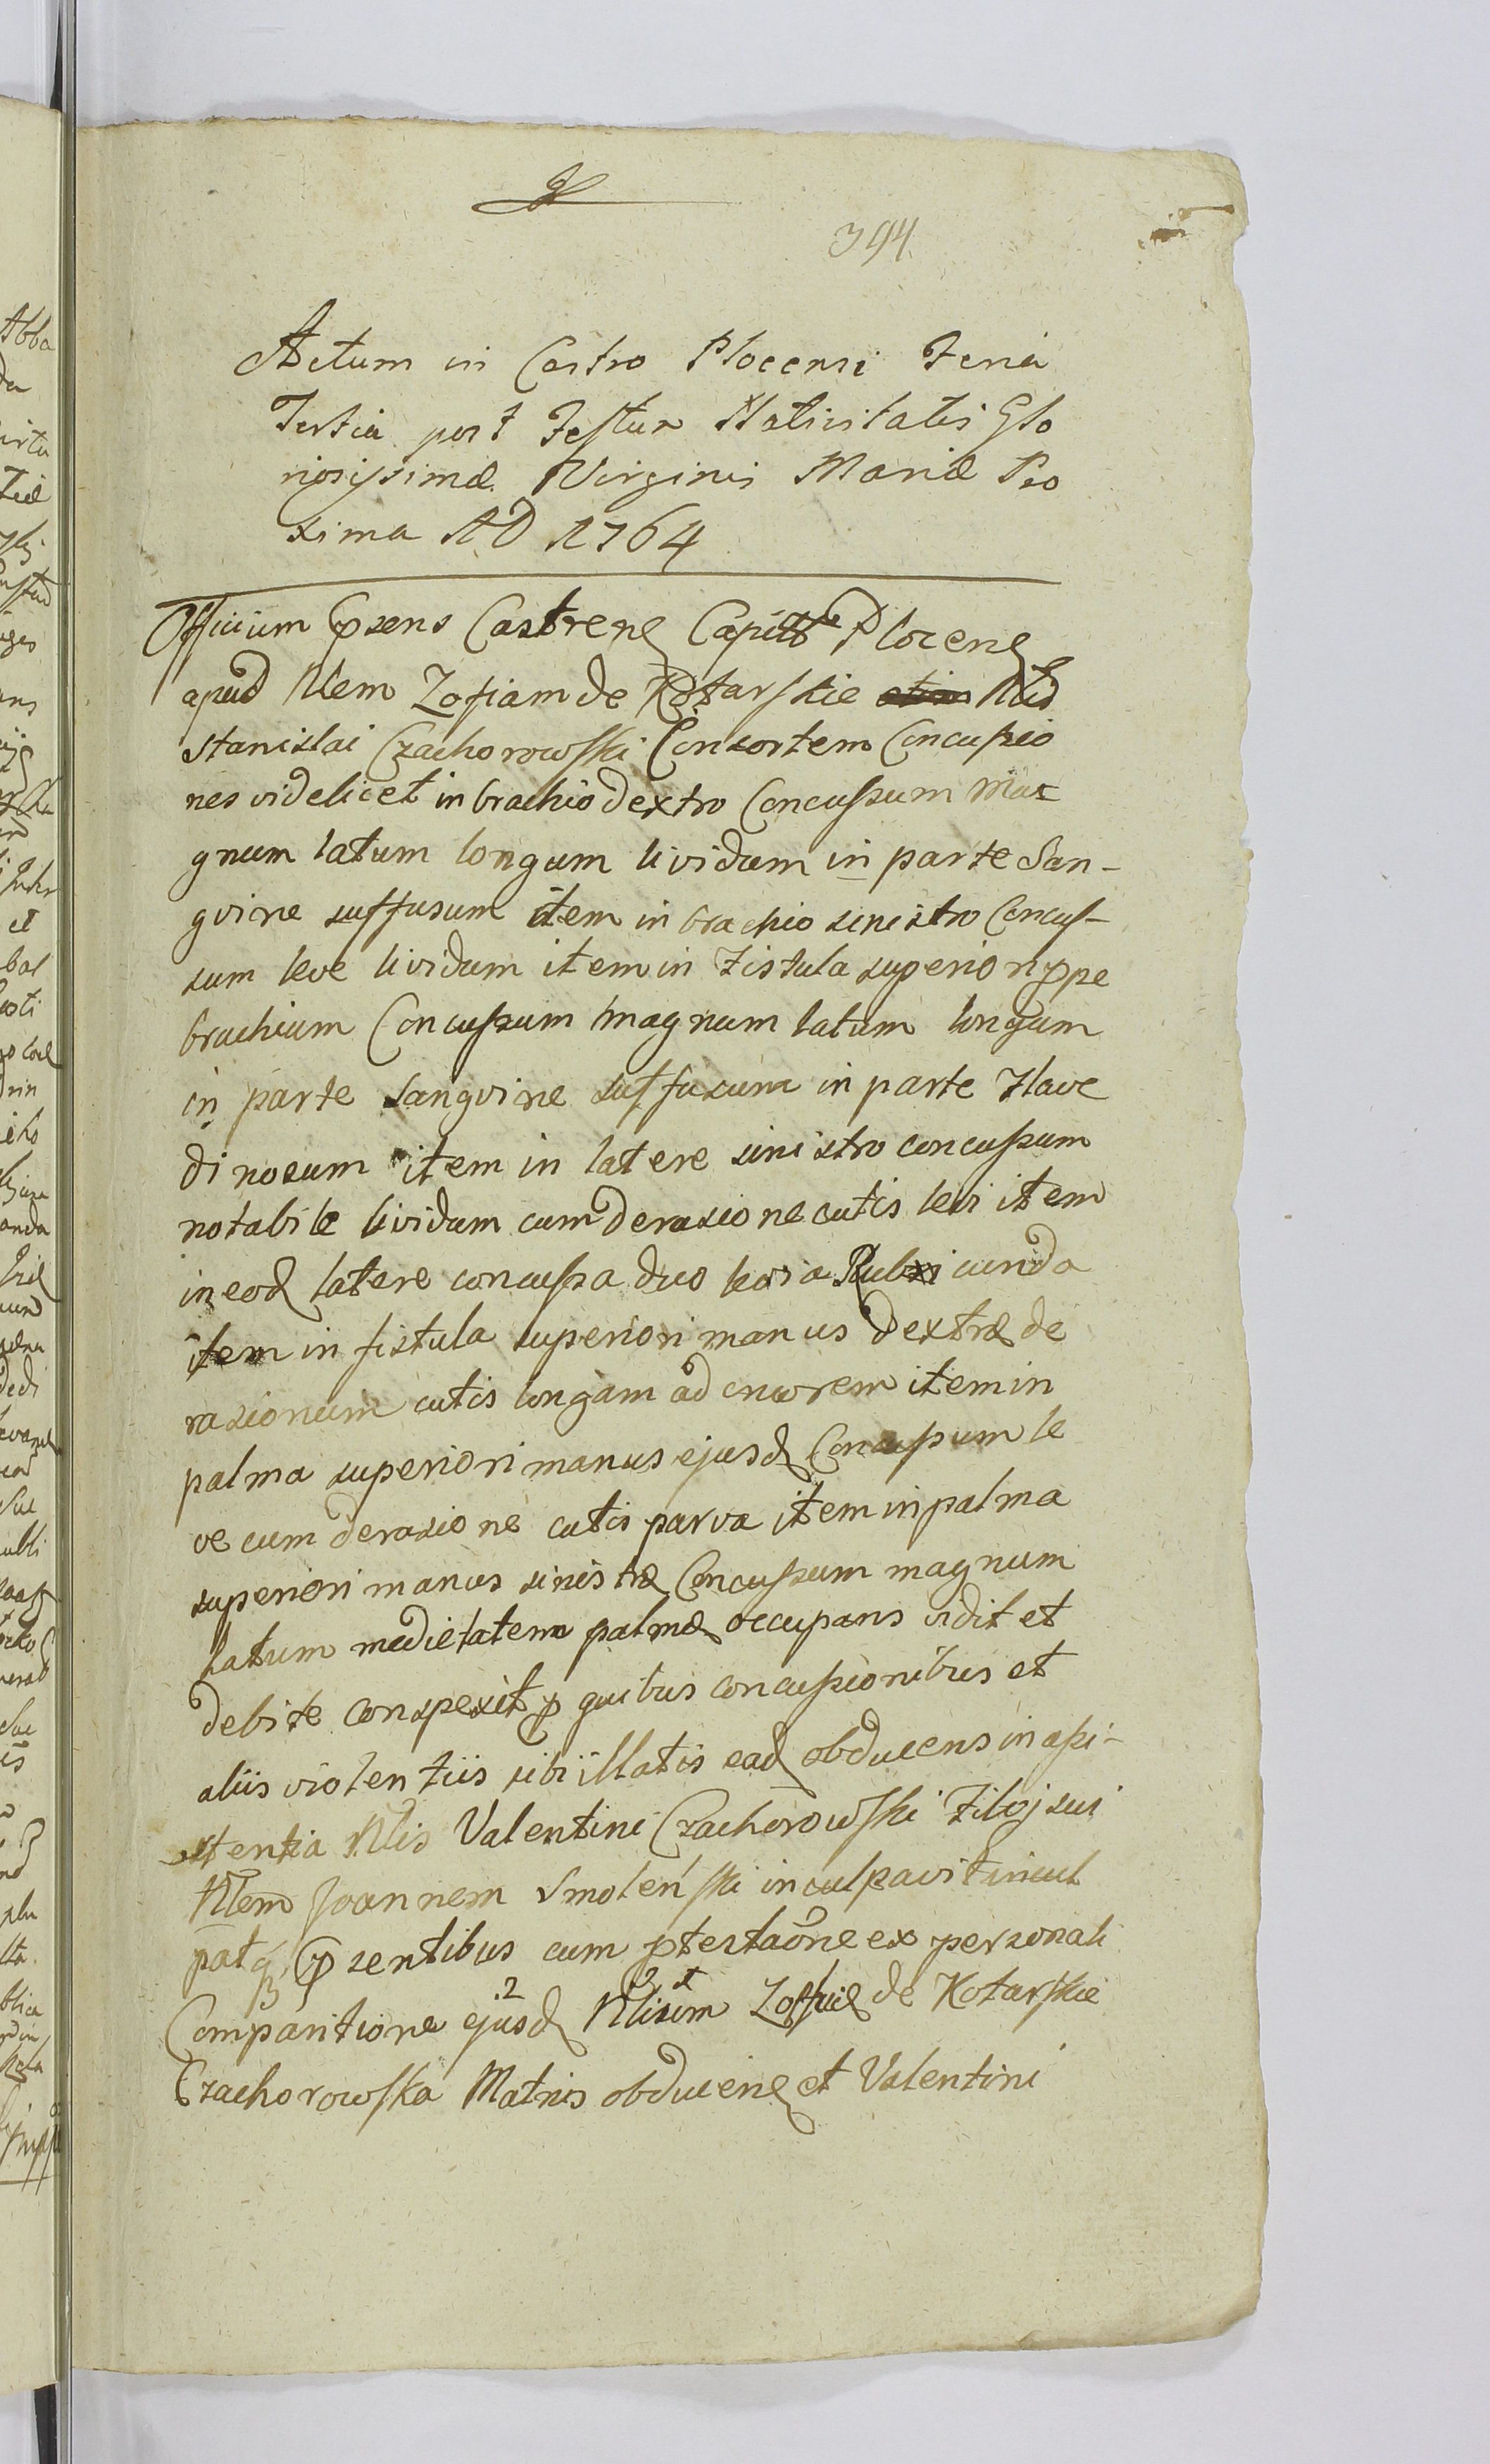 394
Actum in Castro Plocensi Feria
Tertia post Festum Nativitatis Glo
riosissimæ Virginis Mariæ Pro
xima AD 1764
Officium Ꝓsens Castrenꝭ Capitt Plocenꝭ
apud Nlem Zofiam de Kotarskie Nlis
Stanislai Czachorowski Consortem Concussio
nes videlicet in brachio dextro Concussum ma
gnum latum longum lividum in parte San-
gvine suffusum item in brachio sinistro Concus-
sum leve lividum item in Fistula superiori ꝓpe
brachium Concussum magnum latum longum
in parte sangvine suffusum in parte Flave
dinosum item in latere sinistro concussum
notabile lividum cum derasione cutis levi item
in eodꝭ latere concussa duo levia Rubicunda
item in fistula superiori manus dextræ de
rasionum cutis longam ad cruorem item in
palma superiori manus ejusdꝭ Concussum le
ve cum derasione cutis parva item in palma
superiori manus sinistræ Concussum magnum
latum medietatem palmæ occupans vidit et
debite conspexit ꝓ quibus concussionibus et
aliis violentiis sibi illatis eadꝭ obducens in assi-
stentia Nlis Valentini Czachorowski Filij sui
Nlem Joannem Smoleński inculpavit incul
patqꝫ ꝓsentibus cum ꝓtestaone ex personali
Comparitione ejusdꝭ Nlium Zofiæ de Kotarskie
Czachorowska Matris obducenꝭ et Valentini